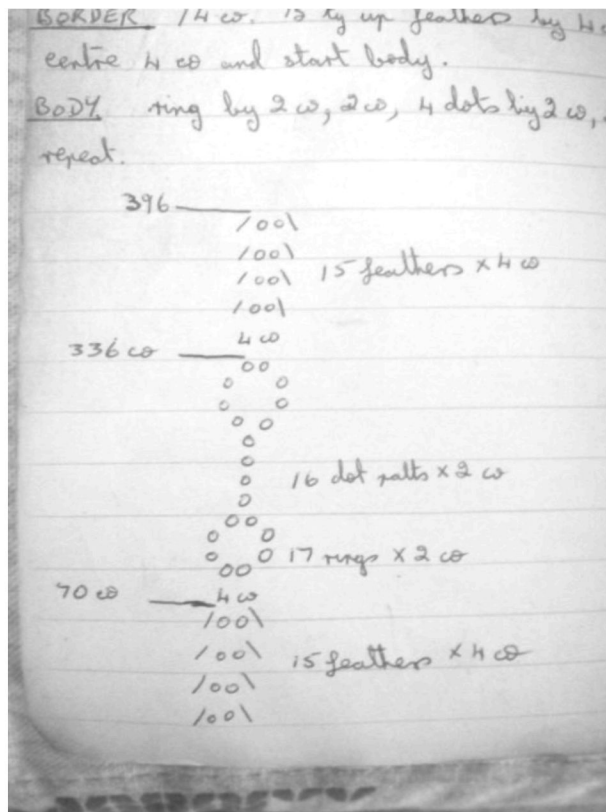 BORDER 14 co. 15 ky up feathers by 4
centre 4 co and start body.
BODY ring by 2 co, 2 co, 4 dots by 2 co,
repeat.
396
/oo\
/oo\
/oo\ 15 feathers x 4 co
/oo\
4 co
336 co
16 dot patts x 2 co
17 rings x 2 co
70 co 4 co
/oo\
/oo\ 15 feathers x 4 co
/oo\
/oo\